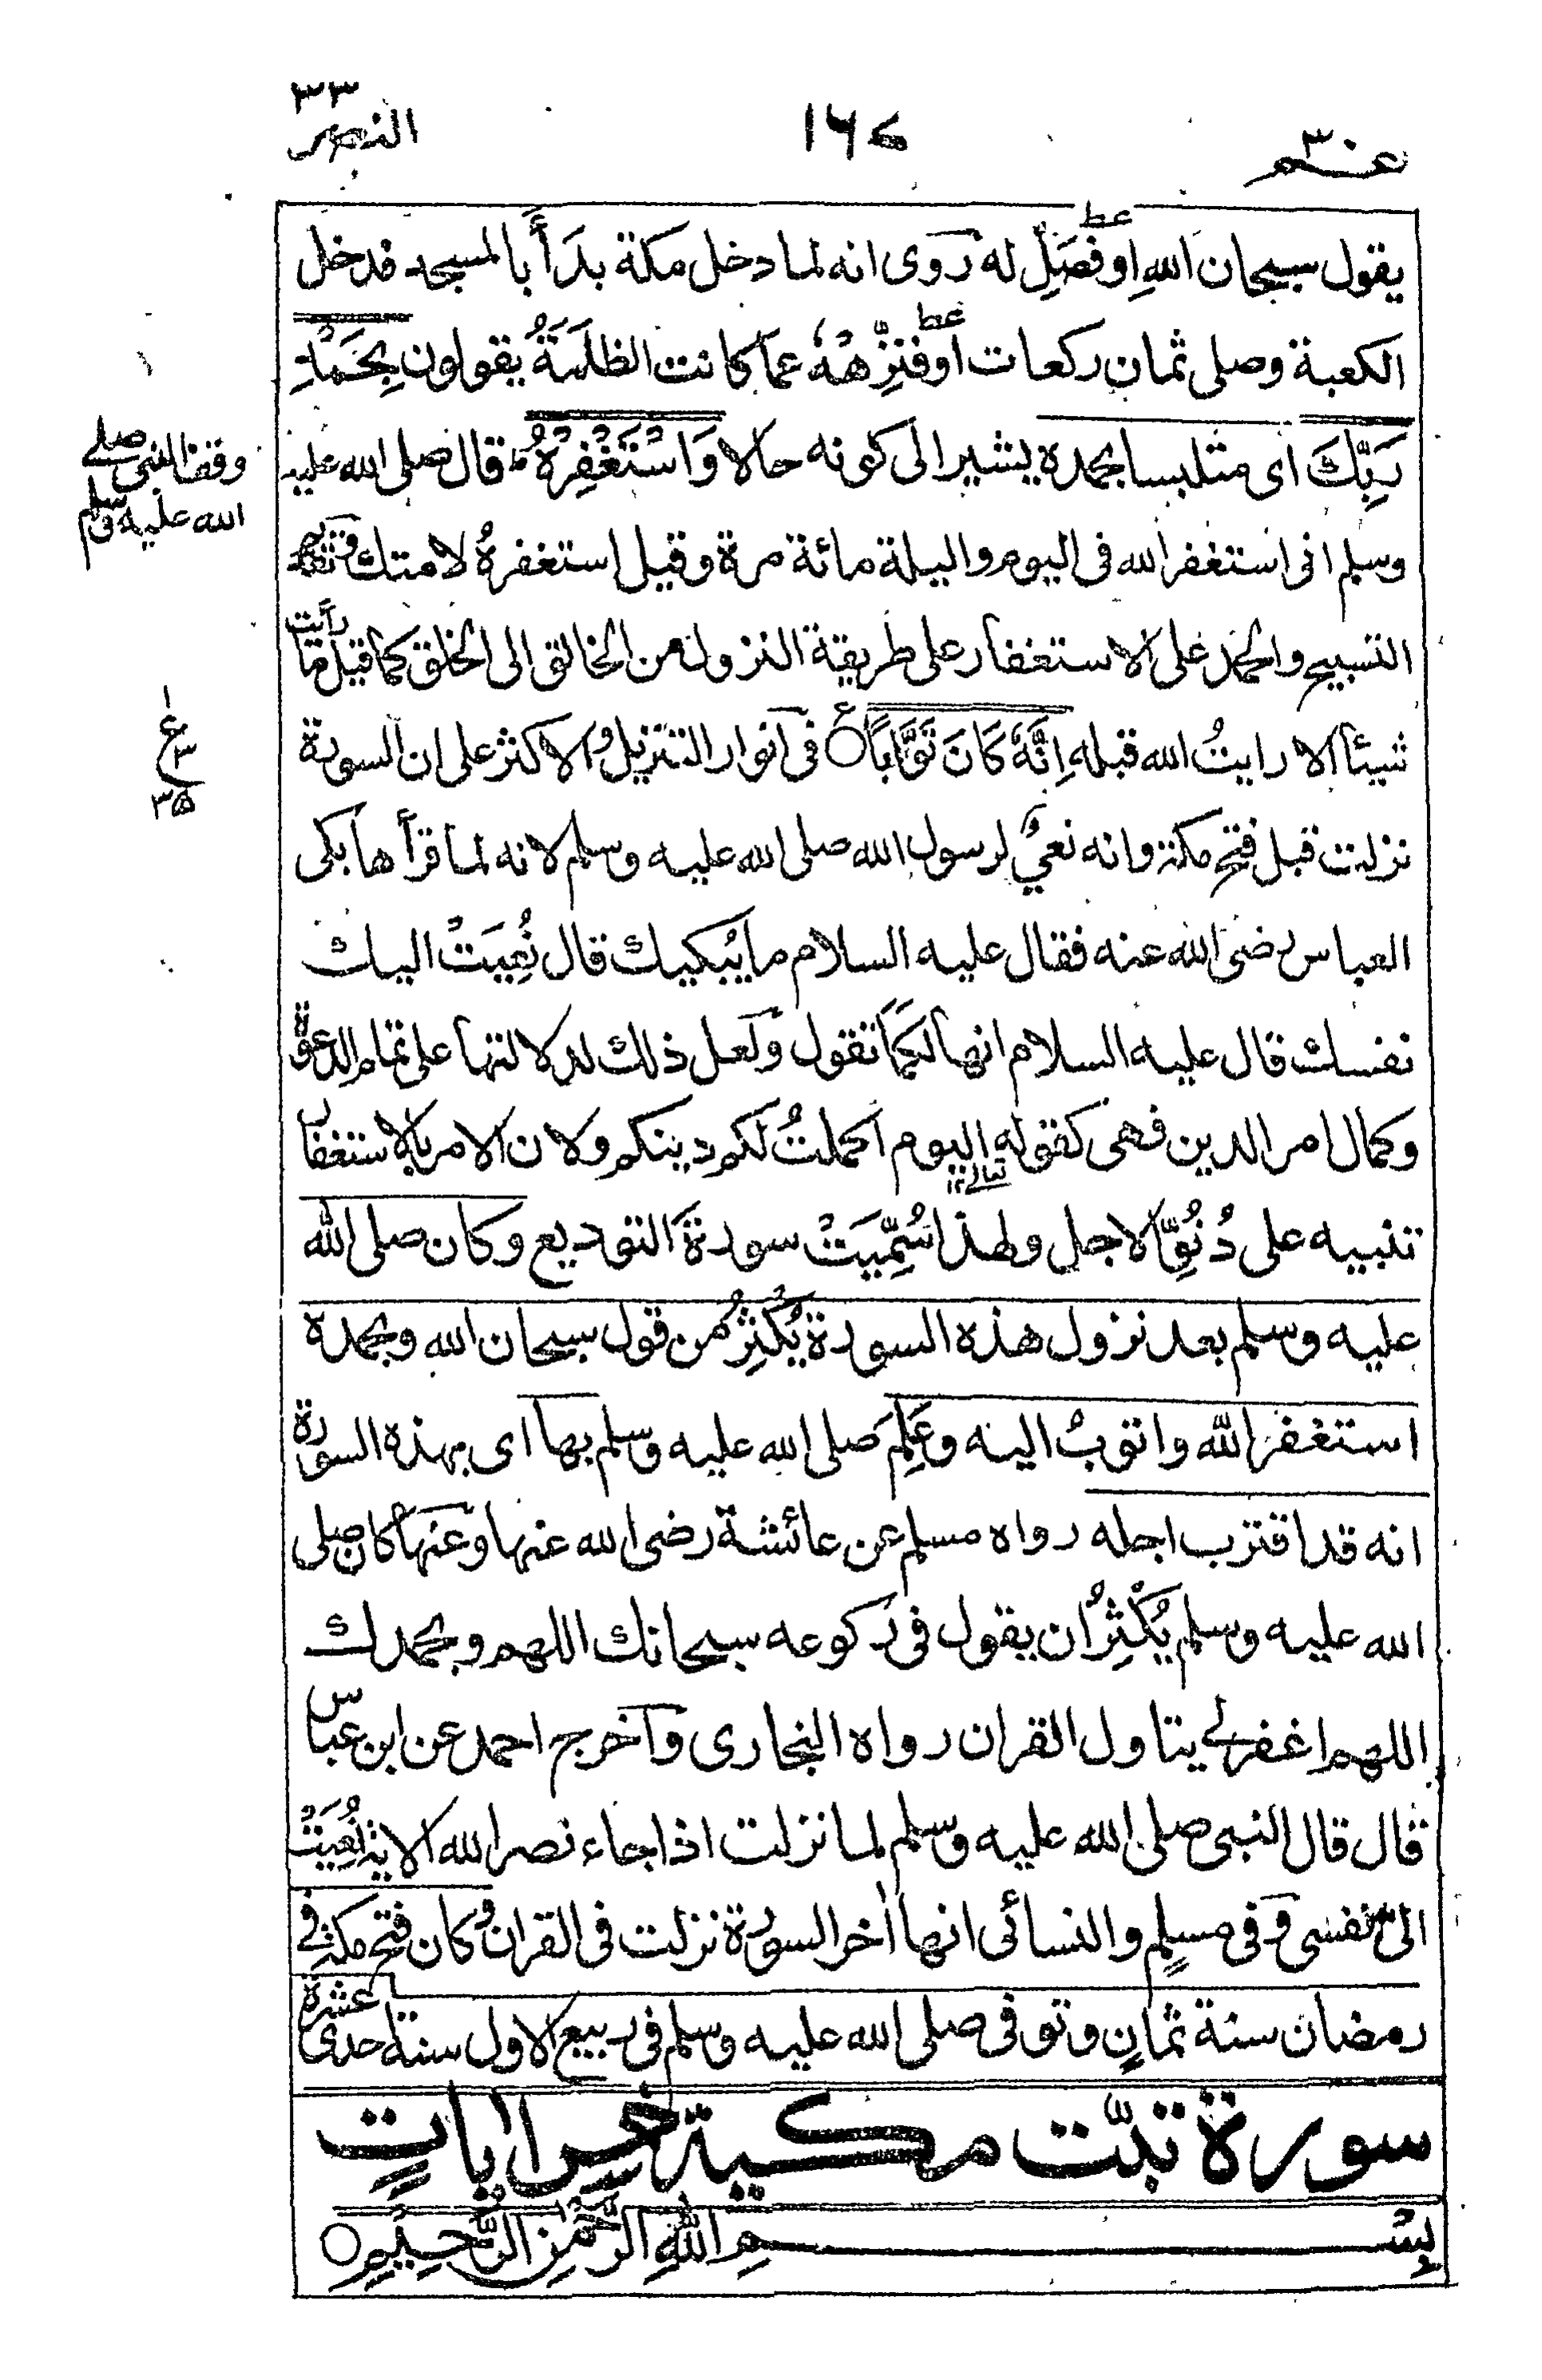 ٣٣
النصر
١٦٧
عم ٣٠
يقول سبحان الله او فَصَلِّ له رَوى انه لما دخل مكة بدَأَ بالمسجد فدخل
عط
الكعبة وصلى ثمان ركعات او فنزِّهْهُ عما كانت الظلَمَةُ يقولون بِحَمْدِ
عط
رَبِّكَ اى متلبسا بحمده يشير الى كونه حالا وَاسْتَغْفِرْهُ ط قال صلى الله عليه
وقف النبى صلى
الله عليه وسلم
وسلم انى استغفر الله فى اليوم والليلة مائة مرة وقيل استغفرهُ لامتك وتقديم
التسبيح والحمد على الاستغفار على طريقة النزول من الخالق الى الخلق كما قيل ما رأيت
شيئا الا رايتُ الله قبله اِنَّهٗ كَانَ تَوَّابًا ○ فى انوار التنزيل والاكثر على ان السورة
ع
ع
٣
٣٥
نزلت قبل فتح مكة وانه نعىٌ لرسول الله صلى الله عليه وسلم لانه لما قرأها بكى
العباس رضى الله عنه فقال عليه السلام ما يُبكيك قال نُعِيَتْ اليك
نفسك قال عليه السلام انها لكَمَا تقول ولعل ذلك لدلالتها على تمام الدعوة
وكمال امر الدين فهى كقوله اليوم اكملتُ لكم دينكم ولان الامر بالاستغفار
تعالى ١٢
تنبيه على دُنُوِّ الاجل ولهذا سُمِّيَتْ سورةَ التوديع وكان صلى الله
عليه وسلم بعد نزول هذه السورة يُكْثِرُ من قول سبحان الله وبحمده
استغفر الله واتوبُ اليه وعَلِمَ صلى الله عليه وسلم بها اى بهذه السورة
انه قد اقترب اجله رواه مسلم عن عائشة رضى الله عنها وعنها كان صلى
الله عليه وسلم يُكْثِرُ ان يقول فى ركوعه سبحانك اللهم وبحمدك
اللهم اغفر لى يتاول القران رواه البخارى واخرج احمد عن ابن عباس
قال قال النبى صلى الله عليه وسلم لما نزلت اذا جاء نصر الله الاية نُعِيَتْ
الىَّ نفسى وفى مسلِمٍ والنسائى انها اٰخر السورة نزلت فى القران وكان فتح مكة فى
رمضان سنة ثمانٍ وتوفى صلى الله عليه وسلم فى ربيع الاول سنة احدى عشرة
سورة تبّت مكية خمس اٰياتٍ
بِسْمِ اللّٰهِ الرَّحْمٰنِ الرَّحِيْمِ ○